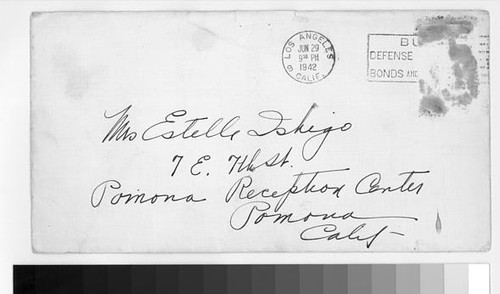 LOS ANGELES
JUN 29
9 PM
1942
CALIF.
BU
DEFENSE
BONDS AND
Mrs Estelle Ishigo
7 E. 7th St.
Pomona Reception Center
Pomona
Calif